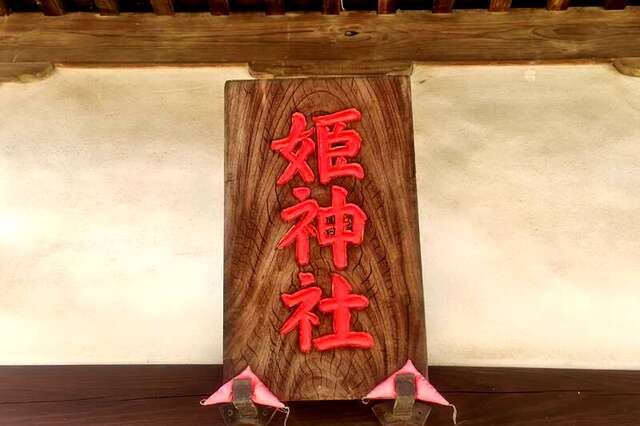 姫神社